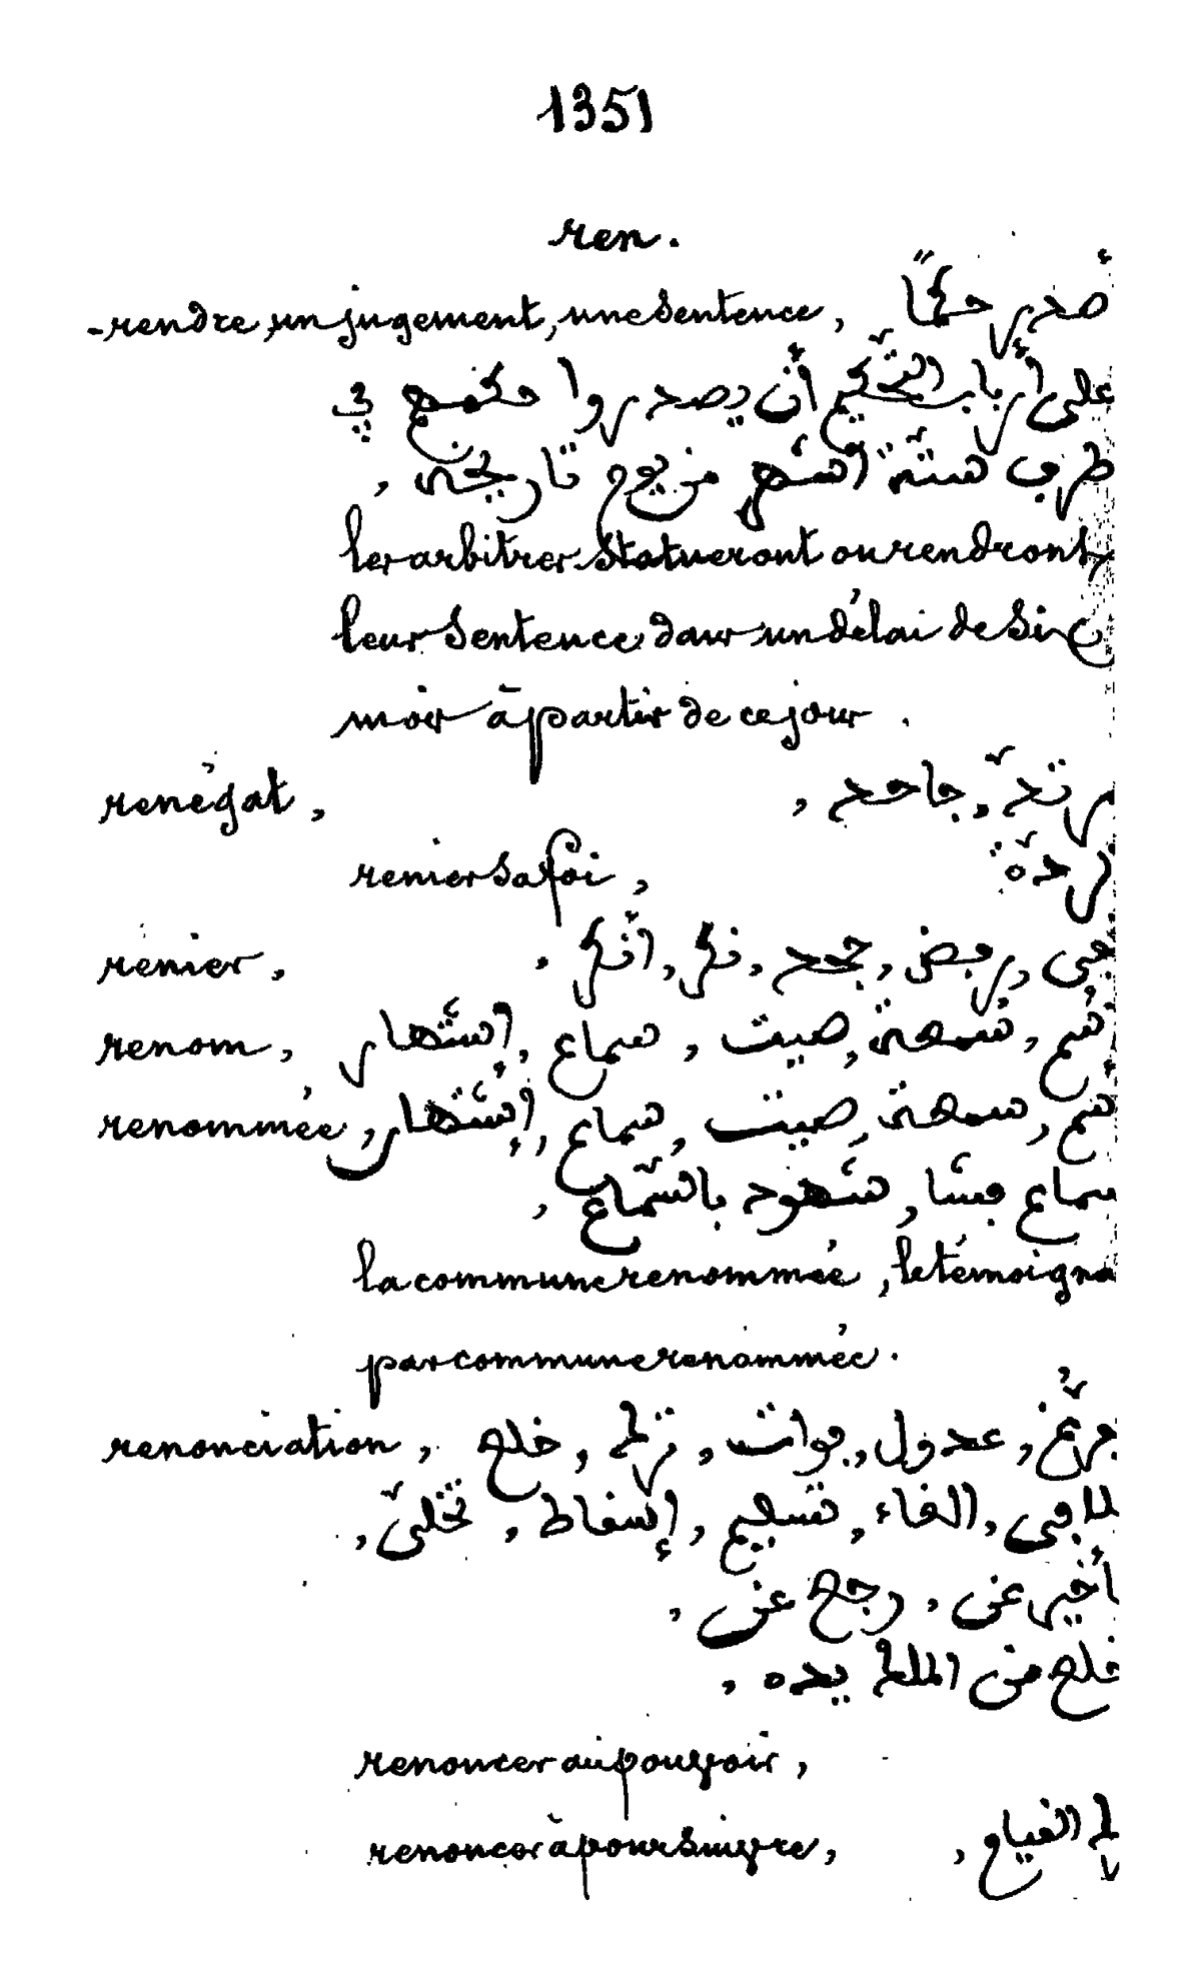 1351
ren.
-rendre, un jugement, une sentence, أصدر حكمًا
على أرباب التحكيم أن يصدروا حكمهم في
ظرف ستة أشهر من يوم تاريخه,
les arbitres statueront ou rendront
leur sentence dans un délai de six
mois à partir de ce jour.
renégat, مرتدّ, جاحد,
renier sa foi, ردة
renier, رفض, جحد, نكر, أنكر,
renom, سمعة, صيت, سماع, إشتهار
renommée, سمعة, صيت, سماع, إشتهار,
سماع فشا, شهود بالسّماع,
la commune renommée, le témoigna
par commune renommée.
renonciation, عدول, فوات, ترك, خلع
الغاء, تسليم, إسقاط, تخلّى,
أخير عن, رجع عن,
خلع من الملك يده,
renoncer au pouvoir,
renoncer à poursuivre, القيام,